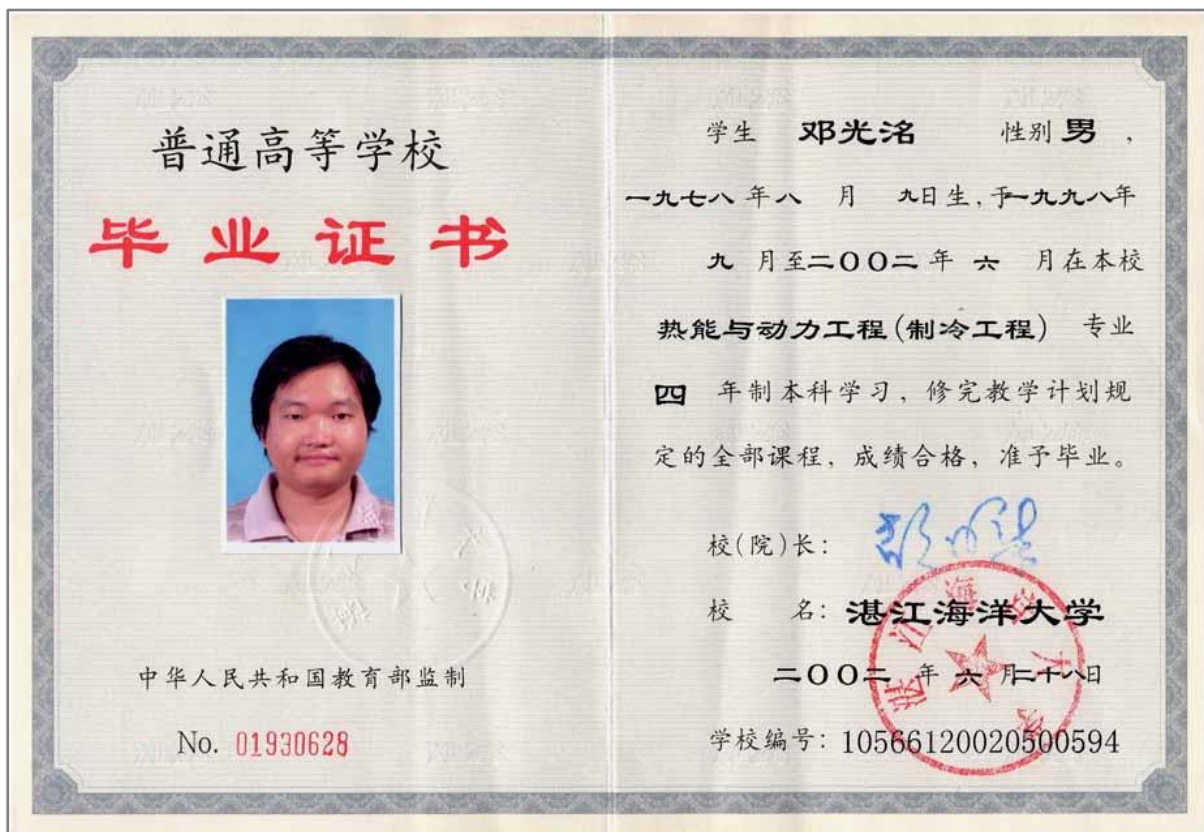 普通高等学校
毕业证书
中华人民共和国教育部监制
No. 01930628
学生 邓光洺 性别 男,
一九七八年八 月 九日生,于一九九八年
九 月至二〇〇二 年 六 月在本校
热能与动力工程(制冷工程) 专业
四 年制本科学习,修完教学计划规
定的全部课程,成绩合格,准予毕业。
校(院)长:
校 名: 湛江海洋大学
二〇〇二 年 六 月二十八日
学校编号: 10566120020500594
湛江海洋大学